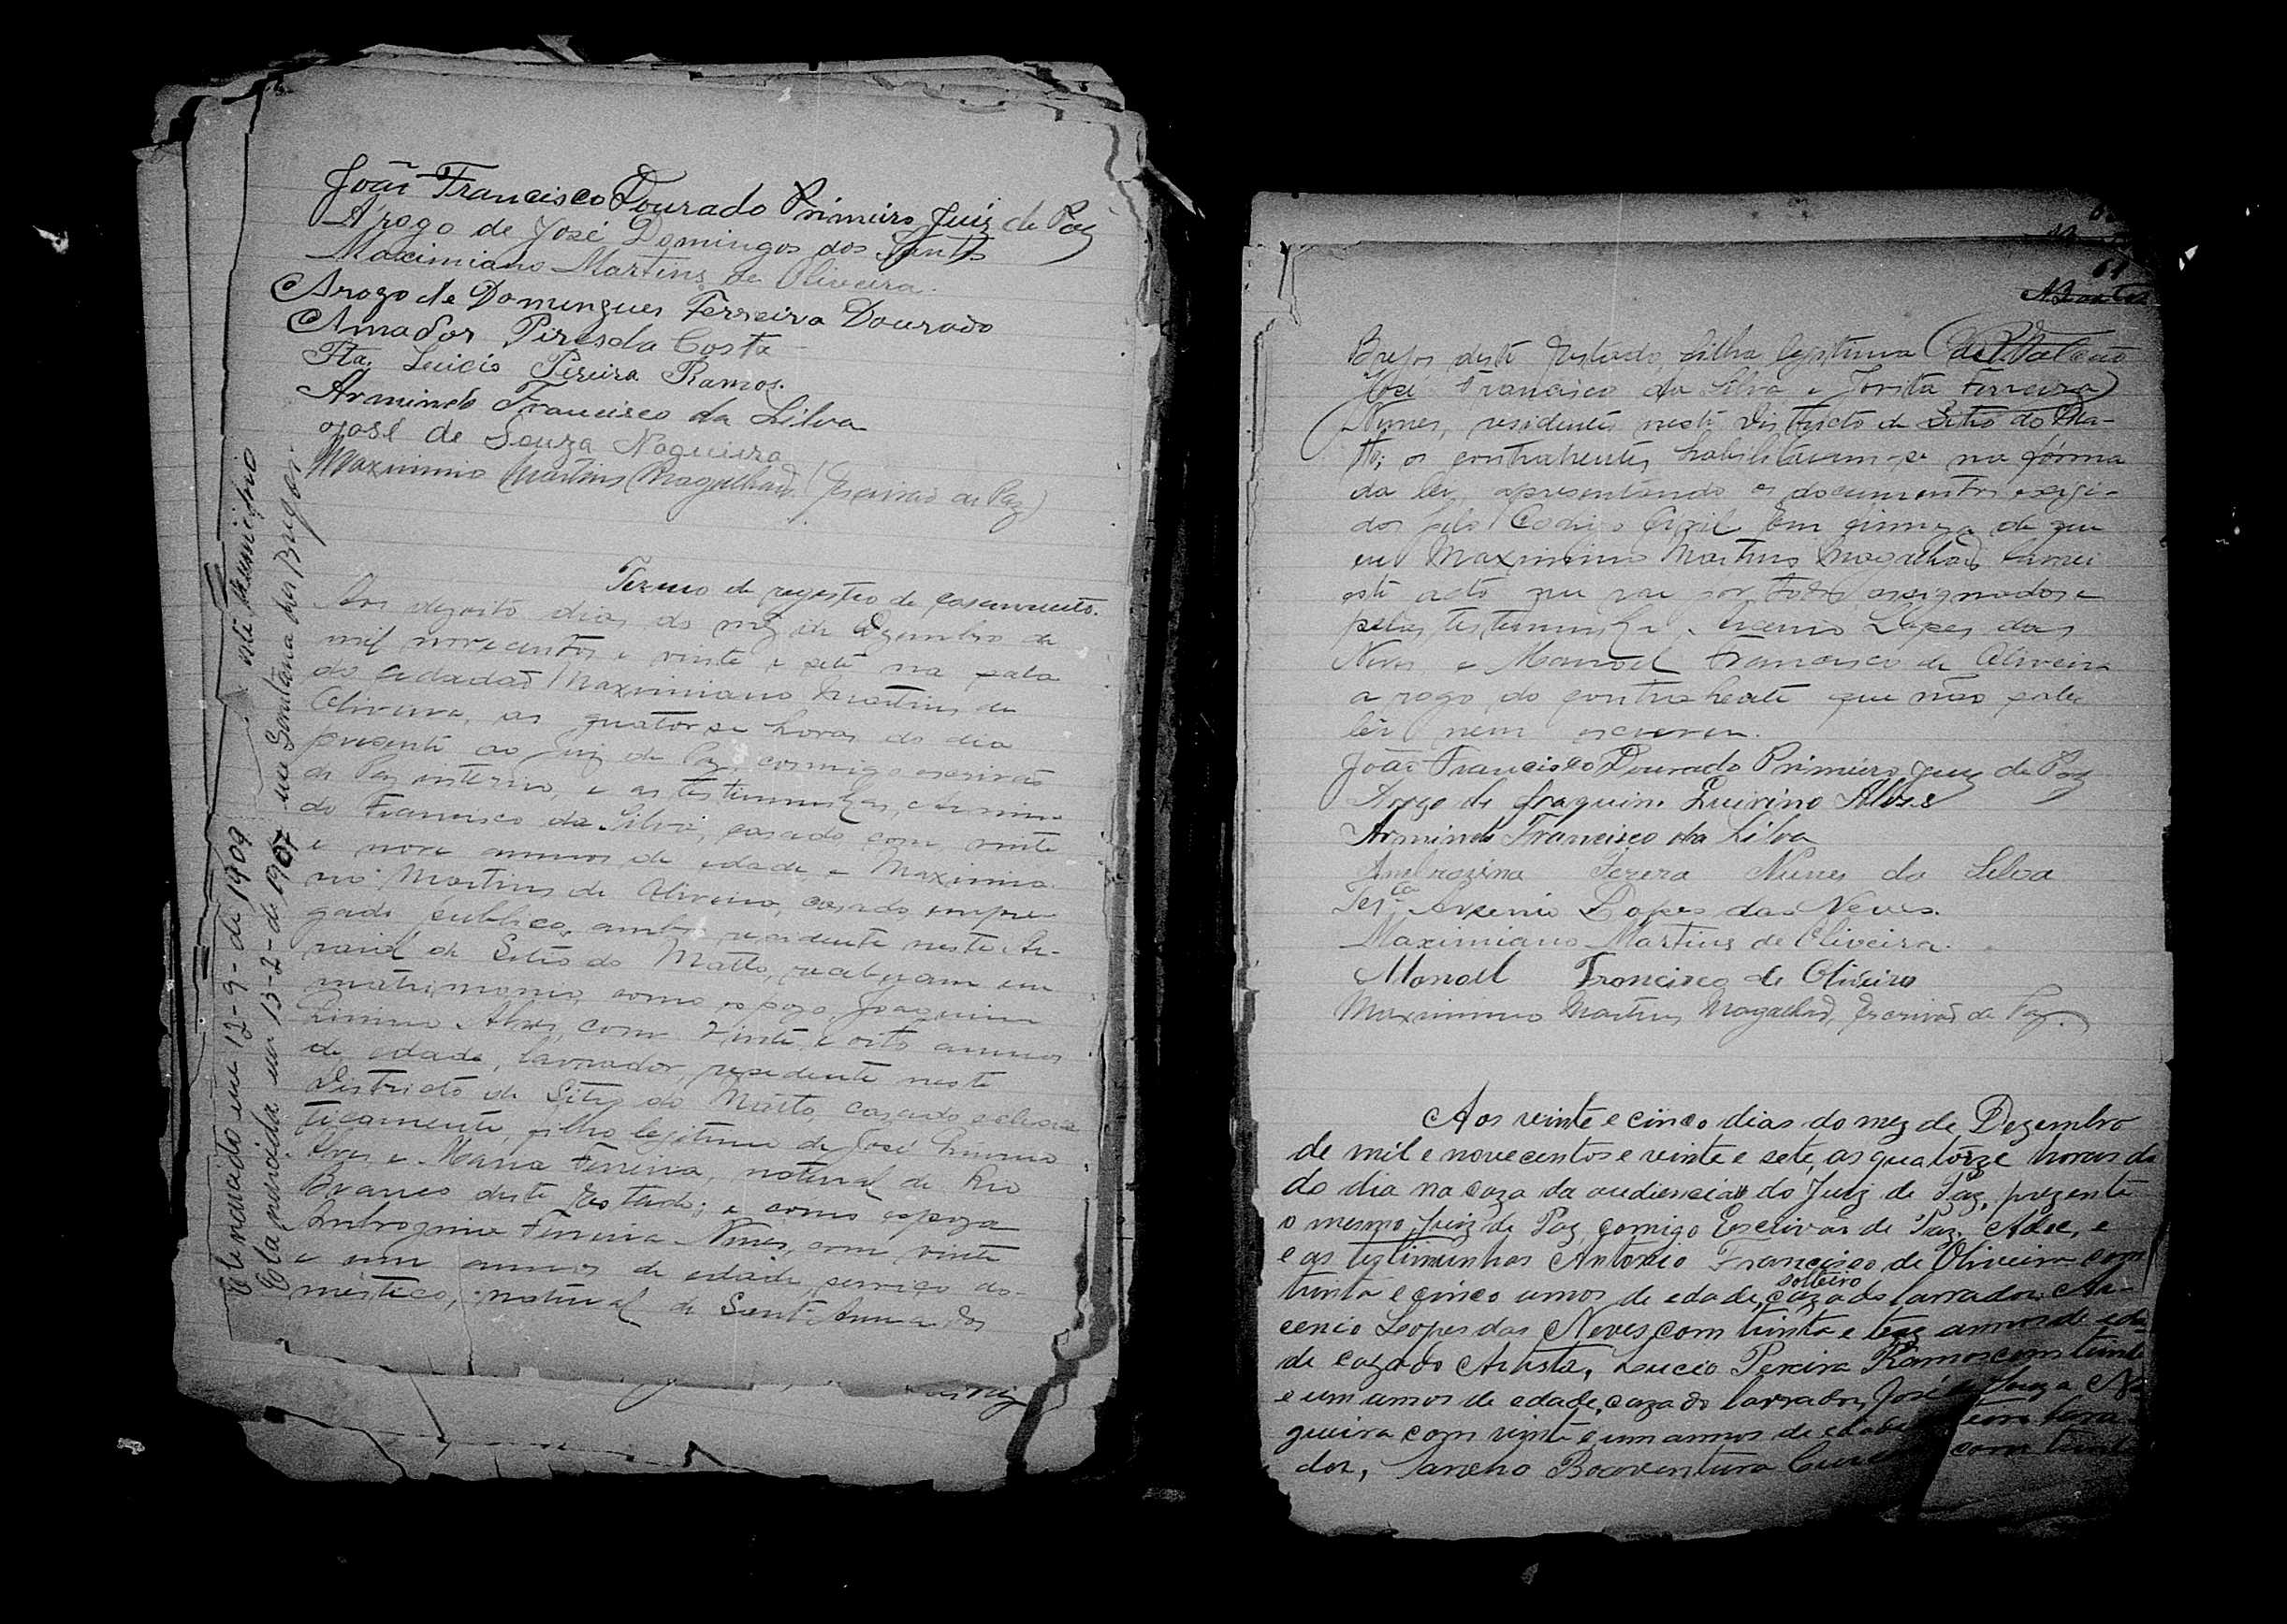 João Francisco Dourado Primeiro Juiz de Paz
A rogo de José Domingos dos Santos
Maximiano Martins de Oliveira.
Arogo de Domingues Ferreira Dourado
Amador Pires da Costa
Lucio Pereira Ramos.
Armindo Francisco da Silva
José de Souza Nogueira
Maximino Martins Magalhães (Escrivão de Paz)
Termo de registro de casamento.
Aos dezoito dias do mez de Dezembro de
mil novecentos e vinte e sete na sala
do cidadão Maximiano Martins de
Oliveira, as quatorse horas do dia
presente ao Juiz de Paz commigo escrivão
de Paz interino, e as testemunhas, Armin-
do Francisco da Silva, casado com vinte
e nove annos de edade e Maximia-
no Martins de Oliveira, casado, empre-
gado publico, ambos residente neste Ar-
raial de Sitio do Matto, receberam em
matrimonio como esposo Joaquim
Alves, com vinte e oito annos
de edade, lavrador, residente neste
Districto de Sitio do Matto, casado eclesias-
ticamente, filho legitimo de José
Alves e Maria Ferreira, natural de Rio
Branco deste Estado; e como espoza
Ambrozina Ferreira Nunes, com vinte
e um annos de edade, serviço do-
mestico, natural de Sant'Anna dos
este municipio
em Santana dos Brejos
Ele nascido em 12-9-de 1909
Ela nascida em 13-2-de 1907
61
Brejos deste Estado, filha legitima de
José Francisco da Silva e Ferreira
Nunes, residentes neste Districto de Sitio do Ma-
tto; os contrahentes habilitaram-se na fórma
da lei, apresentando os documentos exegi-
dos pelo Codigo Civil. Em firmeza de que
eu Maximino Martins Magalhães lavrei
este acto que vae por todos assignados e
pelas testemunhas, Arcenio Lopes das
Neves e Manoel Francisco de Oliveira
a rogo do contrahente que não sabe
ler nem escrever.
João Francisco Dourado Primeiro Juiz de Paz
Arogo de Joaquim Quirino Alves
Armindo Francisco da Silva
Ambrozina Nunes da Silva
Arsenio Lopes das Neves.
Maximiano Martins de Oliveira.
Manoel Francisco de Oliveira
Maximino Martins Magalhães, Escrivão de Paz.
Aos vinte e cinco dias do mez de Dezembro
de mil e novecentos e vinte e sete, as quatorze horas do
do dia na caza da audiencia do Juiz de Paz, prezente
o mesmo Juiz de Paz, comigo Escrivão de Paz, e
e as testimunhas Antonio Francisco de Oliveira com
solteiro
trinta e cinco annos de edade, cazado lavrador, Ar-
cenio Lopes das Neves, com trinta e trez annos de eda-
de cazado Artista, Lucio Pereira Ramos com trinta
e um annos de edade, cazado lavrador, José de Souza No-
gueira com vinte e um annos de edade lavra-
dor, Sancho Boaventura com